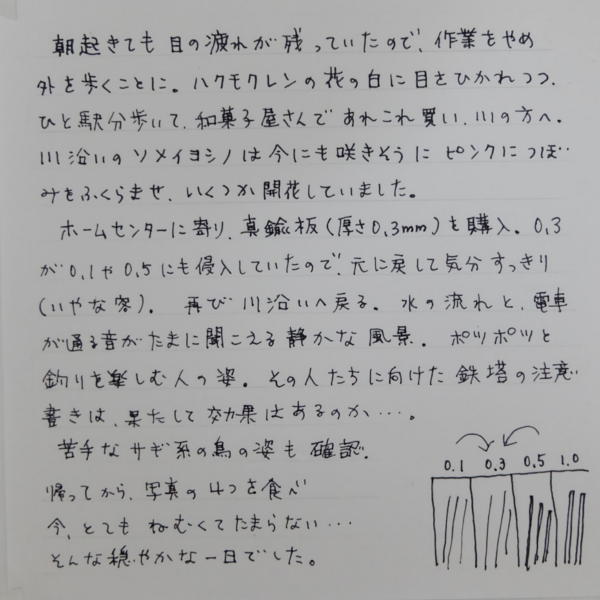 朝起きても目の疲れが残っていたので、作業をやめ
外を歩くことに。ハクモクレンの花の白に目をひかれつつ、
ひと駅分歩いて、和菓子屋さんであれこれ買い、川の方へ。
川沿いのソメイヨシノは今にも咲きそうにピンクにつぼ
みをふくらませ、いくつか開花していました。
ホームセンターに寄り、真鍮板(厚さ0.3mm)を購入。0.3
が0.1や0.5にも侵入していたので、元に戻して気分すっきり
(いやな客)。 再び川沿いへ戻る。水の流れと、電車
が通る音がたまに聞こえる静かな風景。ポツポツと
釣りを楽しむ人の姿。その人たちに向けた鉄塔の注意
書きは、果たして効果はあるのか…。
苦手なサギ系の鳥の姿も確認。
帰ってから、写真の4つを食べ
今、とてもねむくてたまらない…
そんな穏やかな一日でした。
0.1 0.3 0.5 1.0